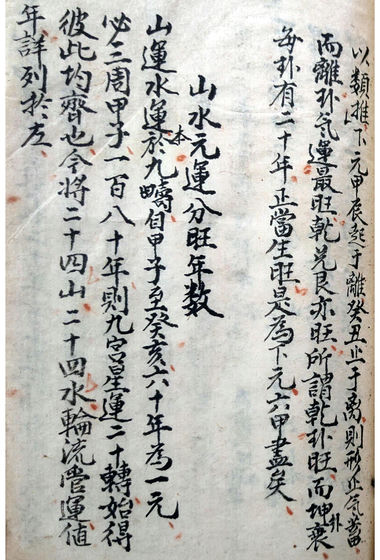 以類推下元甲辰起于離癸丑止于离則形止气蓄
而離卦气運最旺乾兌艮亦旺所謂乾卦旺而坤卦衰
每卦有二十年正當生旺是為下元六甲盡矣
山水元運分旺年数
山運水運本於九疇自甲子至癸亥六十年為一元
必三周甲子一百八十年則九宮星運二十轉始得
彼此均齊也今將二十四山二十四水輪流當運值
年詳列於左